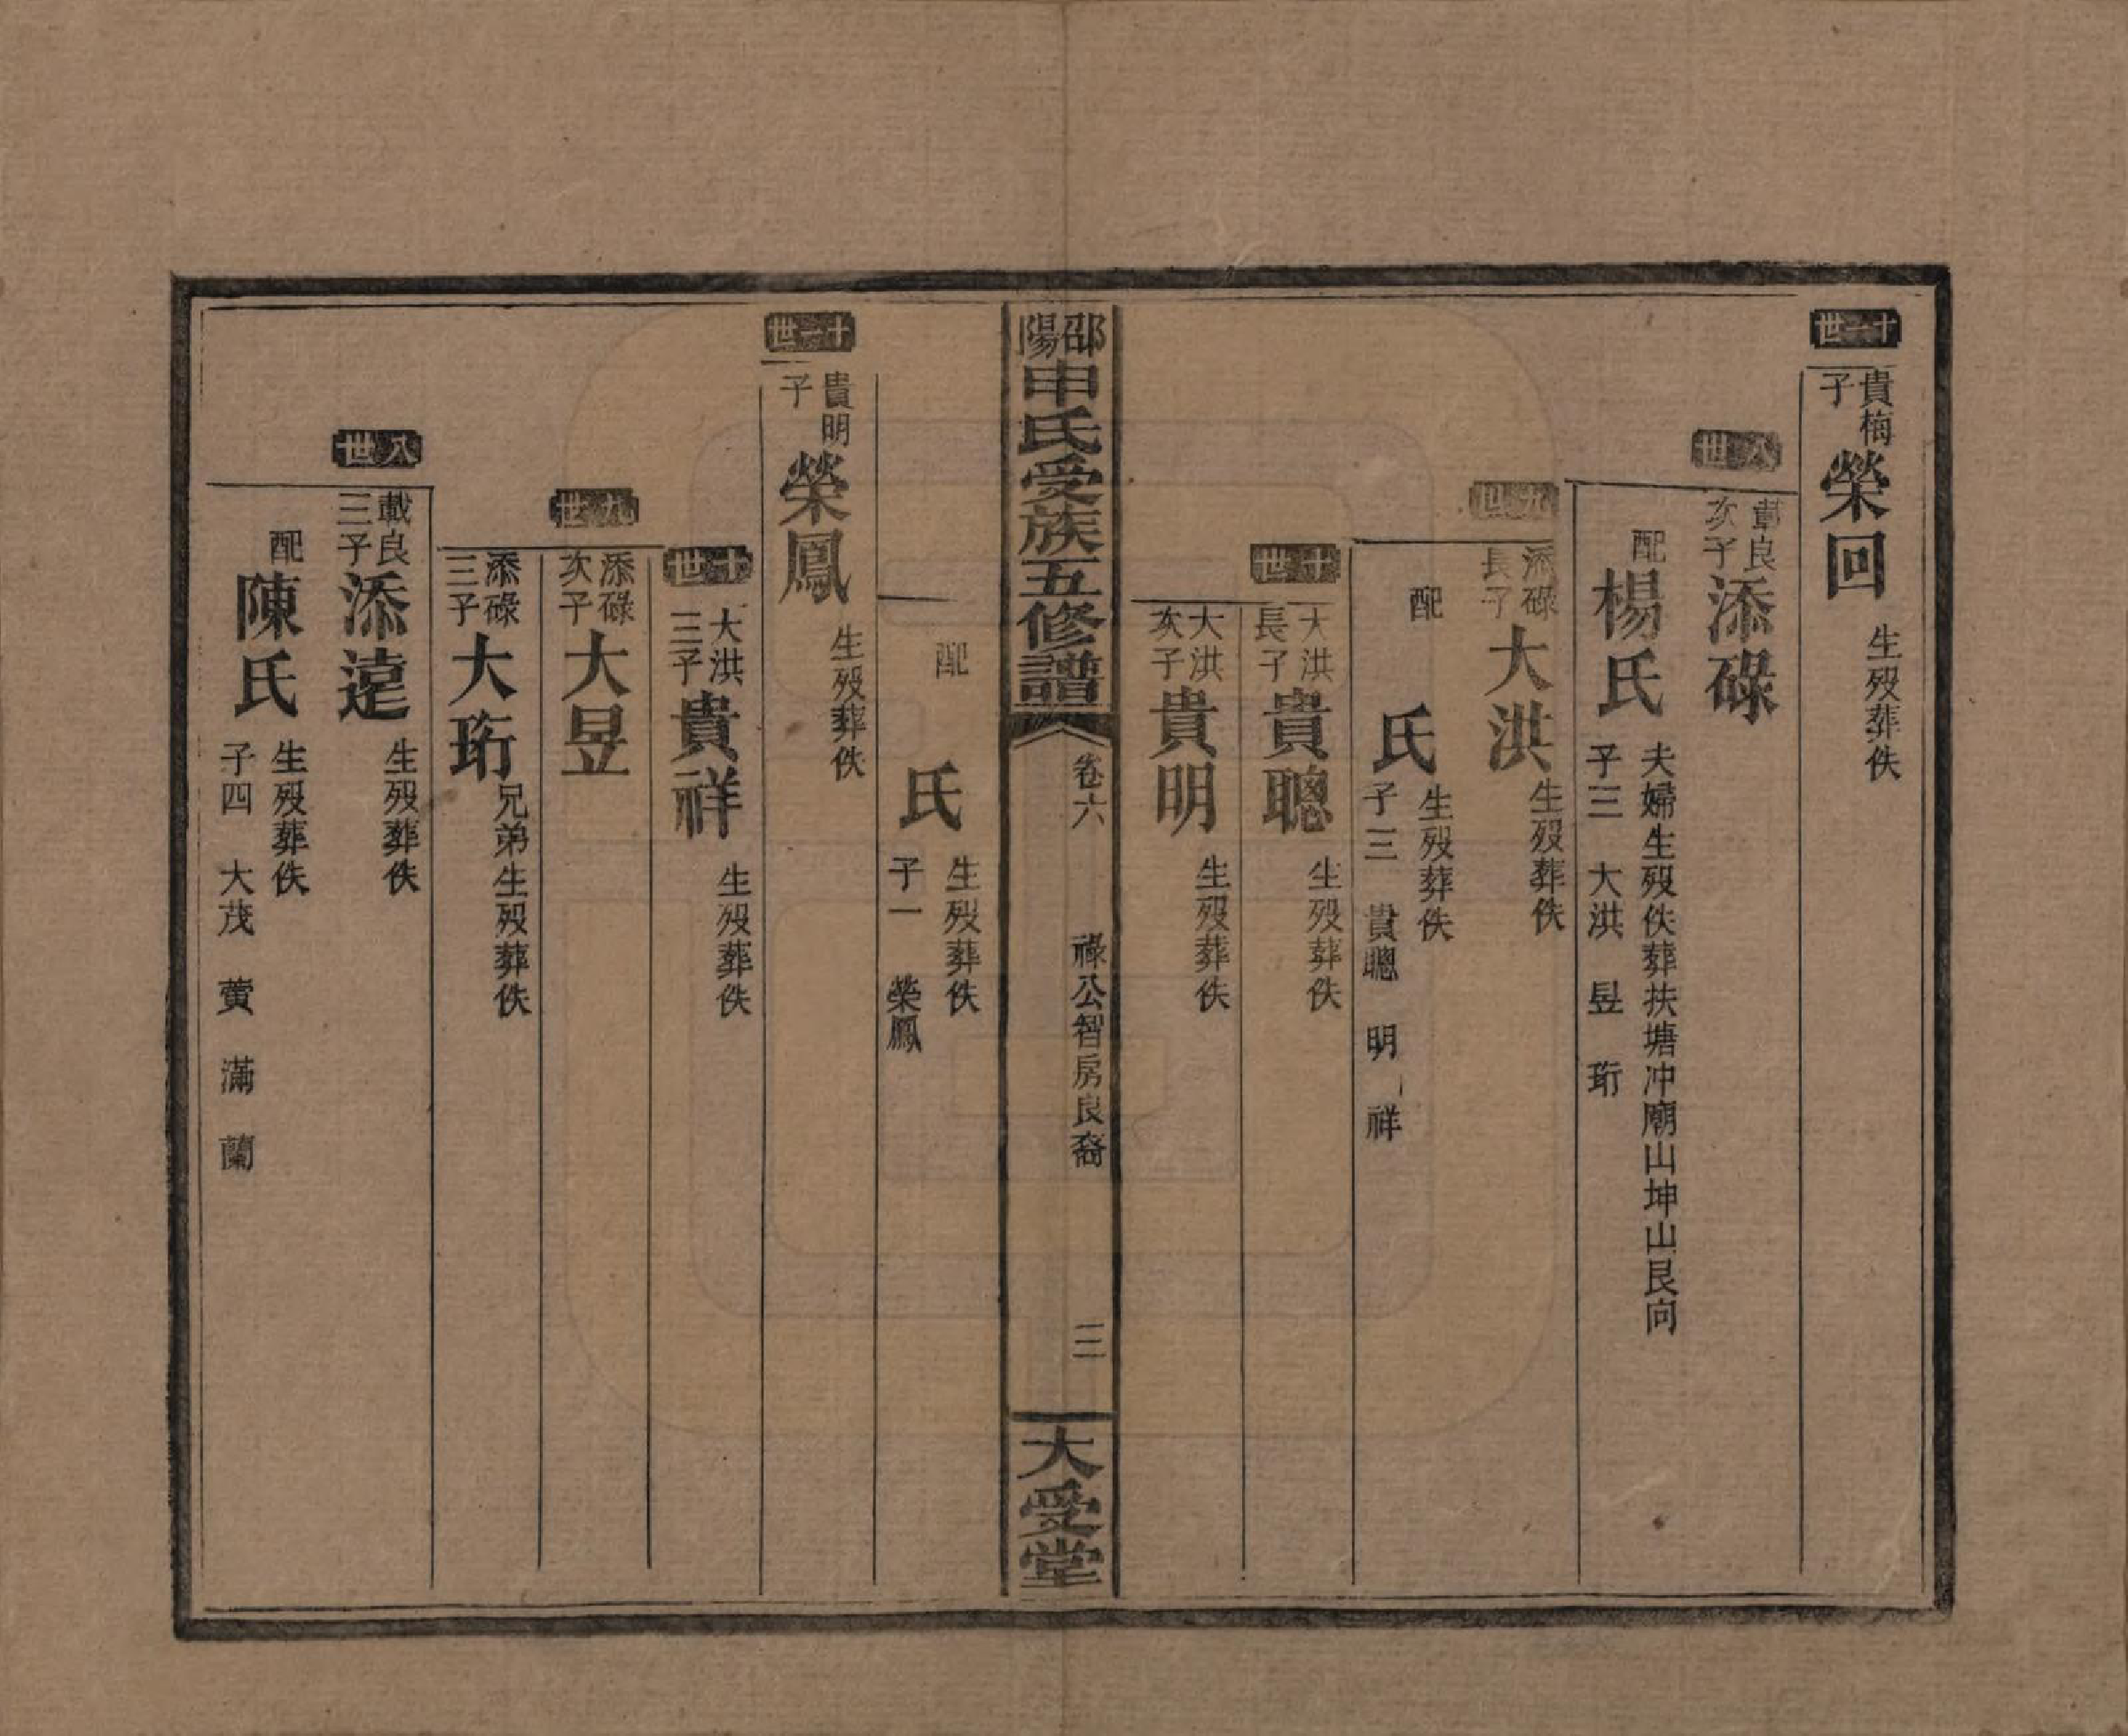 十一世
貴梅子 榮回 生殁葬佚
八世
載良次子 添碌
配 楊氏 夫婦生殁佚葬扶塘冲廟山坤山艮向
子三 大洪 昱 珩
九世
添碌長子 大洪 生殁葬佚
配 氏 生殁葬佚
子三 貴聰 明 祥
十世
大洪長子 貴聰 生殁葬佚
大洪次子 貴明 生殁葬佚
邵陽申氏受族五修譜 卷六 祿公智房良裔 三 大受堂
配 氏 生殁葬佚
子一 榮鳳
十一世
貴明子 榮鳳 生殁葬佚
十世
大洪三子 貴祥 生殁葬佚
九世
添碌次子 大昱
添碌三子 大珩 兄弟生殁葬佚
八世
載良三子 添逺 生殁葬佚
配 陳氏 生殁葬佚
子四 大茂 蕢 滿 蘭